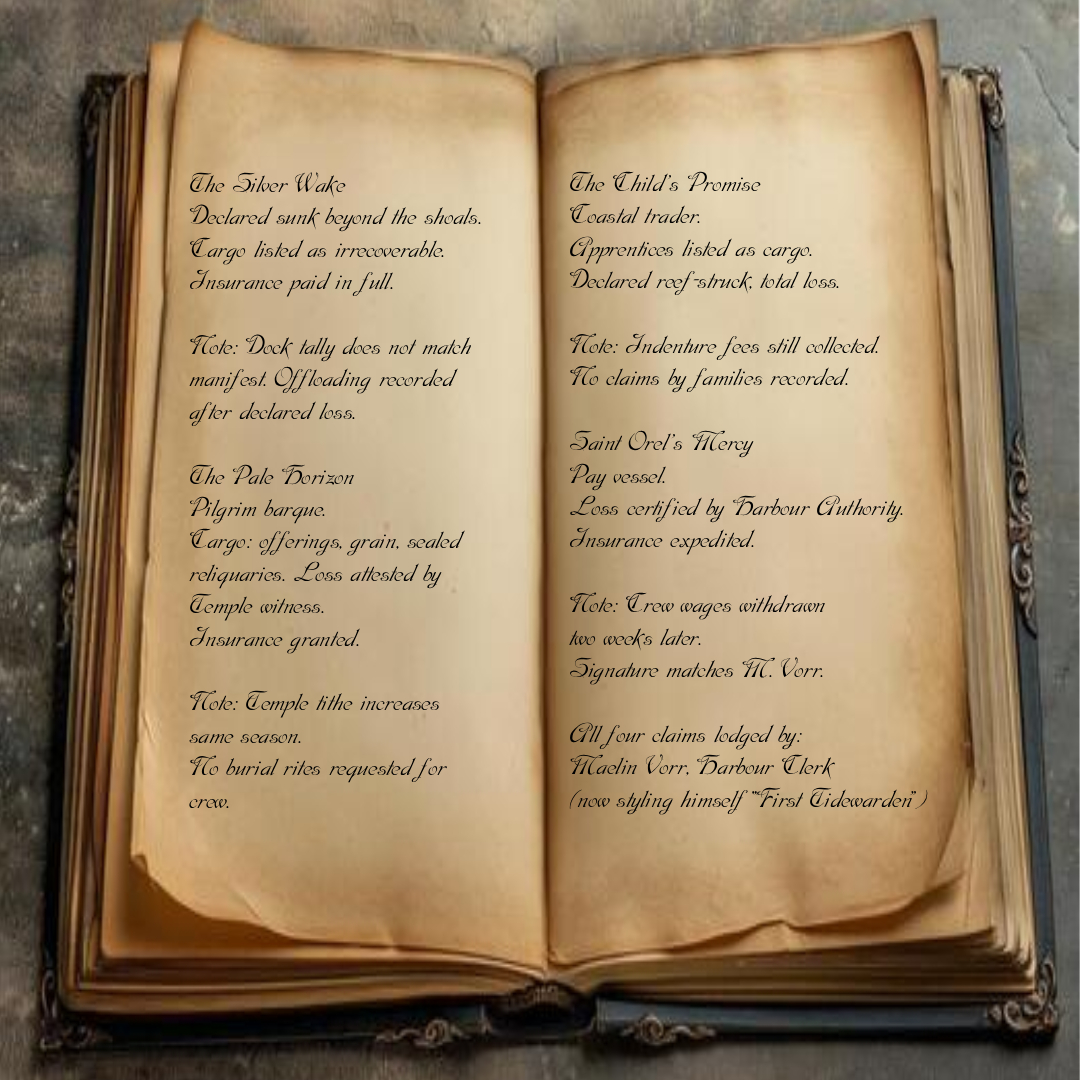 The Silver Wake
Declared sunk beyond the shoals.
Cargo listed as irrecoverable.
Insurance paid in full.
Note: Dock tally does not match
manifest. Offloading recorded
after declared loss.
The Pale Horizon
Pilgrim barque.
Cargo: offerings, grain, sealed
reliquaries. Loss attested by
Temple witness.
Insurance granted.
Note: Temple tithe increases
same season.
No burial rites requested for
crew.
The Child's Promise
Coastal trader.
Apprentices listed as cargo.
Declared reef-struck, total loss.
Note: Indenture fees still collected.
No claims by families recorded.
Saint Orel's Mercy
Pay vessel.
Loss certified by Harbour Authority.
Insurance expedited.
Note: Crew wages withdrawn
two weeks later.
Signature matches M. Vorr.
All four claims lodged by:
Maelin Vorr, Harbour Clerk
(now styling himself "First Tidewarden")